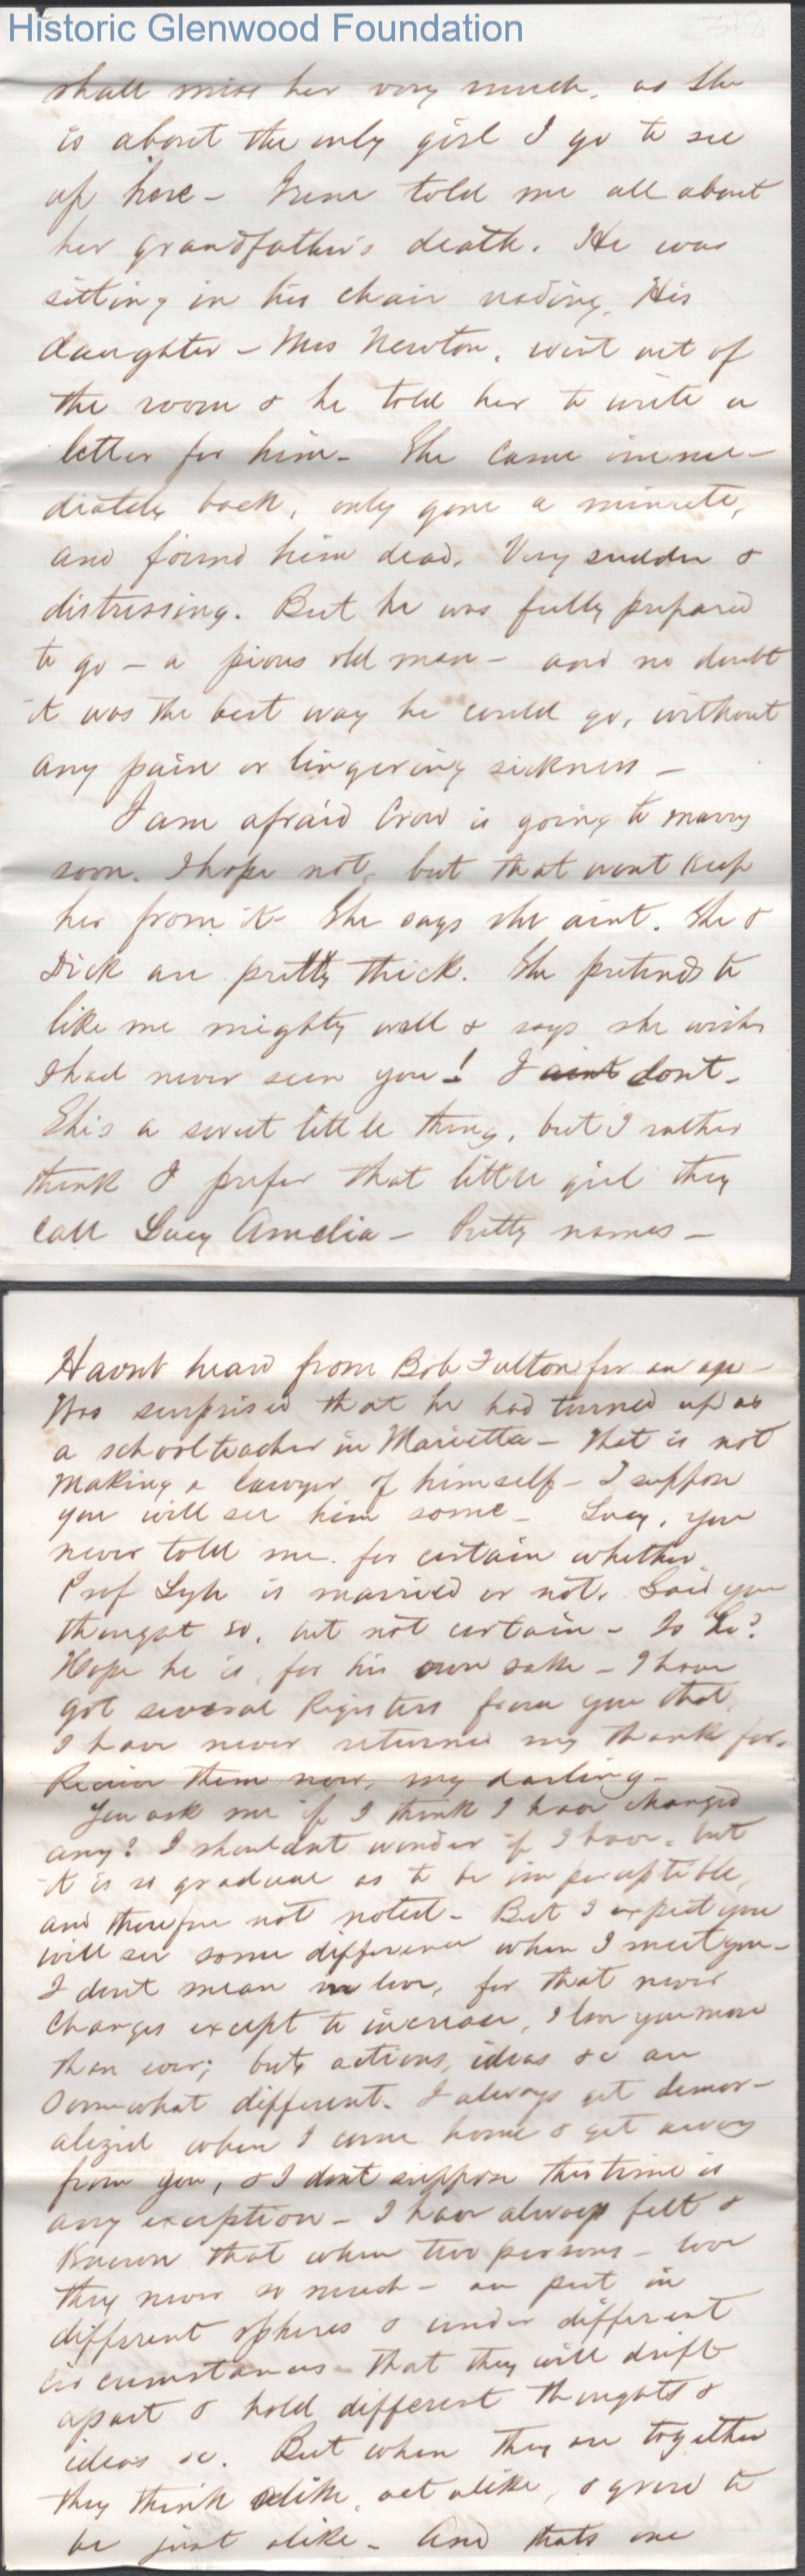 Historic Glenwood Foundation
318
shall miss her very much, as she
is about the only girl I go to see
up here - Irene told me all about
her grandfather's death. He was
sitting in his chair reading. His
daughter - Mrs Newton, went out of
the room & he told her to write a
letter for him - She came imme-
diately back, only gone a minute,
and found him dead. Very sudden &
distressing. But he was fully prepared
to go - a pious old man - and no doubt
it was the best way he could go, without
any pain or lingering sickness -
I am afraid Crow is going to marry
soon. I hope not, but that wont keep
her from it - She says she aint. She &
Dick are pretty thick. She pretends to
like me mighty well & says she wishes
I had never seen you! I aint dont -
She's a sweet little thing, but I rather
think I prefer that little girl they
call Lucy Amelia - Pretty names -
Havnt heard from Bob Fulton for an age -
Was surprised that he had turned up as
a schoolteacher in Marietta - That is not
making a lawyer of himself - I suppose
you will see him some - Lucy, you
never told me for certain whether
Prof Lyle is married or not. Said you
thought so, but not certain - Is he?
Hope he is, for his own sake - I have
got several Registers from you that
I have never returned my thank for.
Receive them now, my darling -
You ask me if I think I have changed
any? I shouldnt wonder if I have, but
it is so gradual as to be imperceptible,
and therefore not noted - But I expect you
will see some difference when I meet you -
I dont mean in love, for that never
changes except to increase, I love you more
than ever; but actions, ideas &c are
somewhat different. I always get demor-
alized when I come home & get away
from you, & I dont suppose this time is
any exception - I have always felt &
known that when two persons - love
they never so much - are put in
different spheres & under different
circumstances - that they will drift
apart & hold different thoughts &
ideas &c. But when they are together
they think alike, act alike, & grow to
be just alike - And thats one